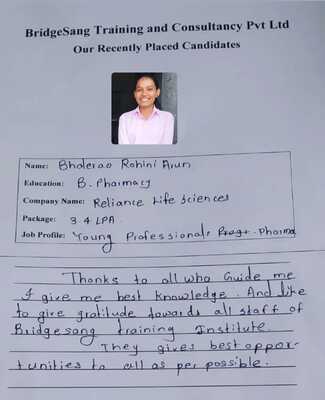 BridgeSang Training and Consultancy Pvt Ltd
Our Recently Placed Candidates
Name: Bholerao Rohini Arun
Education: B. Pharmacy
Company Name: Reliance Life Sciences
Package: 3.4 LPA.
Job Profile: Young Professional Pharma
Thanks to all who Guide me
I give me best knowledge. And like
to give gratitude towards all staff of
Bridgesang training Institute.
They gives best oppor-
tunities to all as per possible.